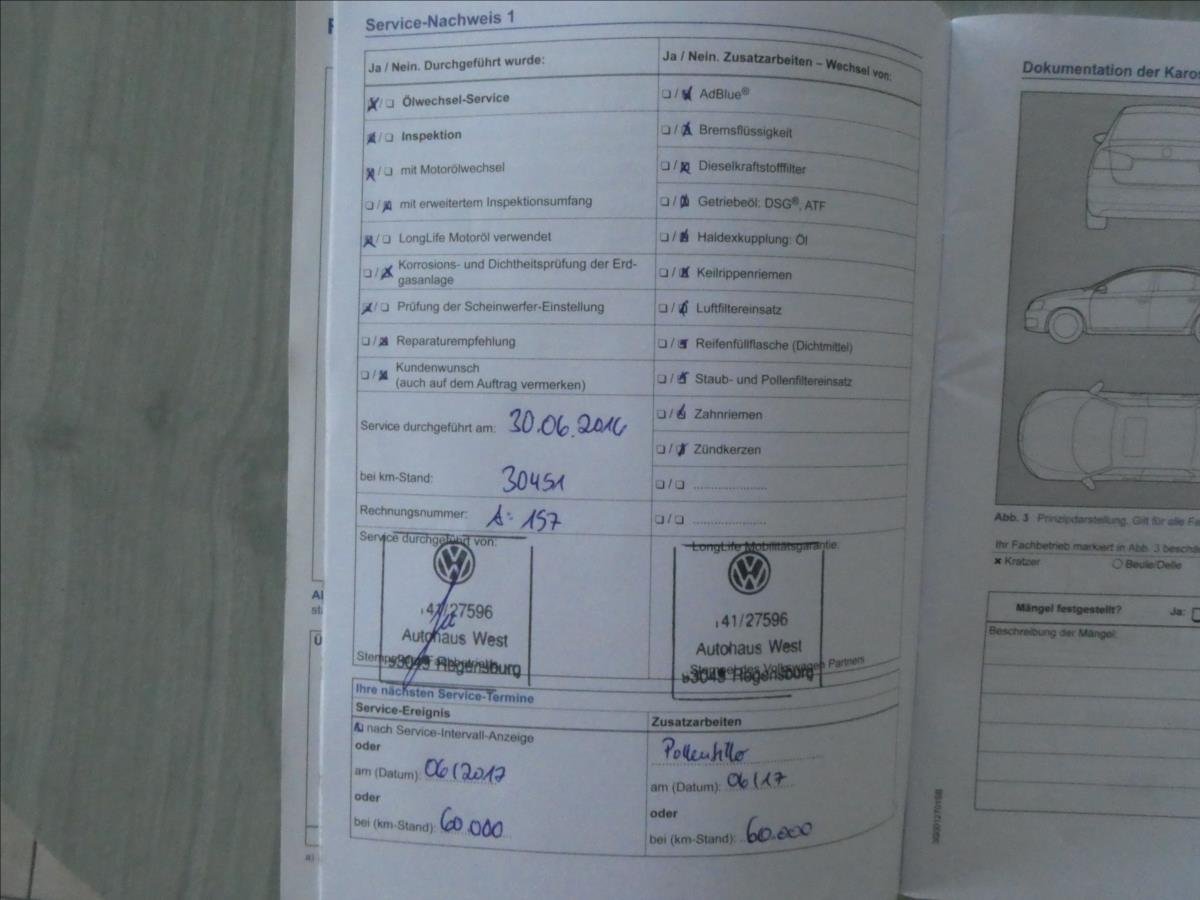 Service-Nachweis 1
Ja / Nein. Durchgeführt wurde:
☒/☐ Ölwechsel-Service
☒/☐ Inspektion
☒/☐ mit Motorölwechsel
☐/☒ mit erweitertem Inspektionsumfang
☒/☐ LongLife Motoröl verwendet
☐/☒ Korrosions- und Dichtheitsprüfung der Erd-
gasanlage
☒/☐ Prüfung der Scheinwerfer-Einstellung
☐/☒ Reparaturempfehlung
☐/☒ Kundenwunsch
(auch auf dem Auftrag vermerken)
Service durchgeführt am: 30.06.2016
bei km-Stand: 30451
Rechnungsnummer: A: 157
Service durchgeführt von:
41/27596
Autohaus West
93049 Regensburg
Ja / Nein. Zusatzarbeiten – Wechsel von:
☐/☒ AdBlue®
☐/☒ Bremsflüssigkeit
☐/☒ Dieselkraftstofffilter
☐/☒ Getriebeöl: DSG®, ATF
☐/☒ Haldexkupplung: Öl
☐/☒ Keilrippenriemen
☐/☒ Luftfiltereinsatz
☐/☒ Reifenfüllflasche (Dichtmittel)
☐/☒ Staub- und Pollenfiltereinsatz
☐/☒ Zahnriemen
☐/☒ Zündkerzen
☐/☐ ....................
☐/☐ ....................
LongLife Mobilitätsgarantie:
41/27596
Autohaus West
93049 Regensburg
Stempel des Volkswagen Partners
Ihre nächsten Service-Termine
Service-Ereignis
☒ nach Service-Intervall-Anzeige
oder
am (Datum): 06/2017
oder
bei (km-Stand): 60.000
Zusatzarbeiten
am (Datum): 06/17
oder
bei (km-Stand): 60.000
Dokumentation der
Abb. 3 Prinzipdarstellung. Gilt für alle
Ihr Fachbetrieb markiert in Abb. 3
× Kratzer ○ Beule/Delle
Mängel festgestellt? Ja: ☐
Beschreibung der Mängel: